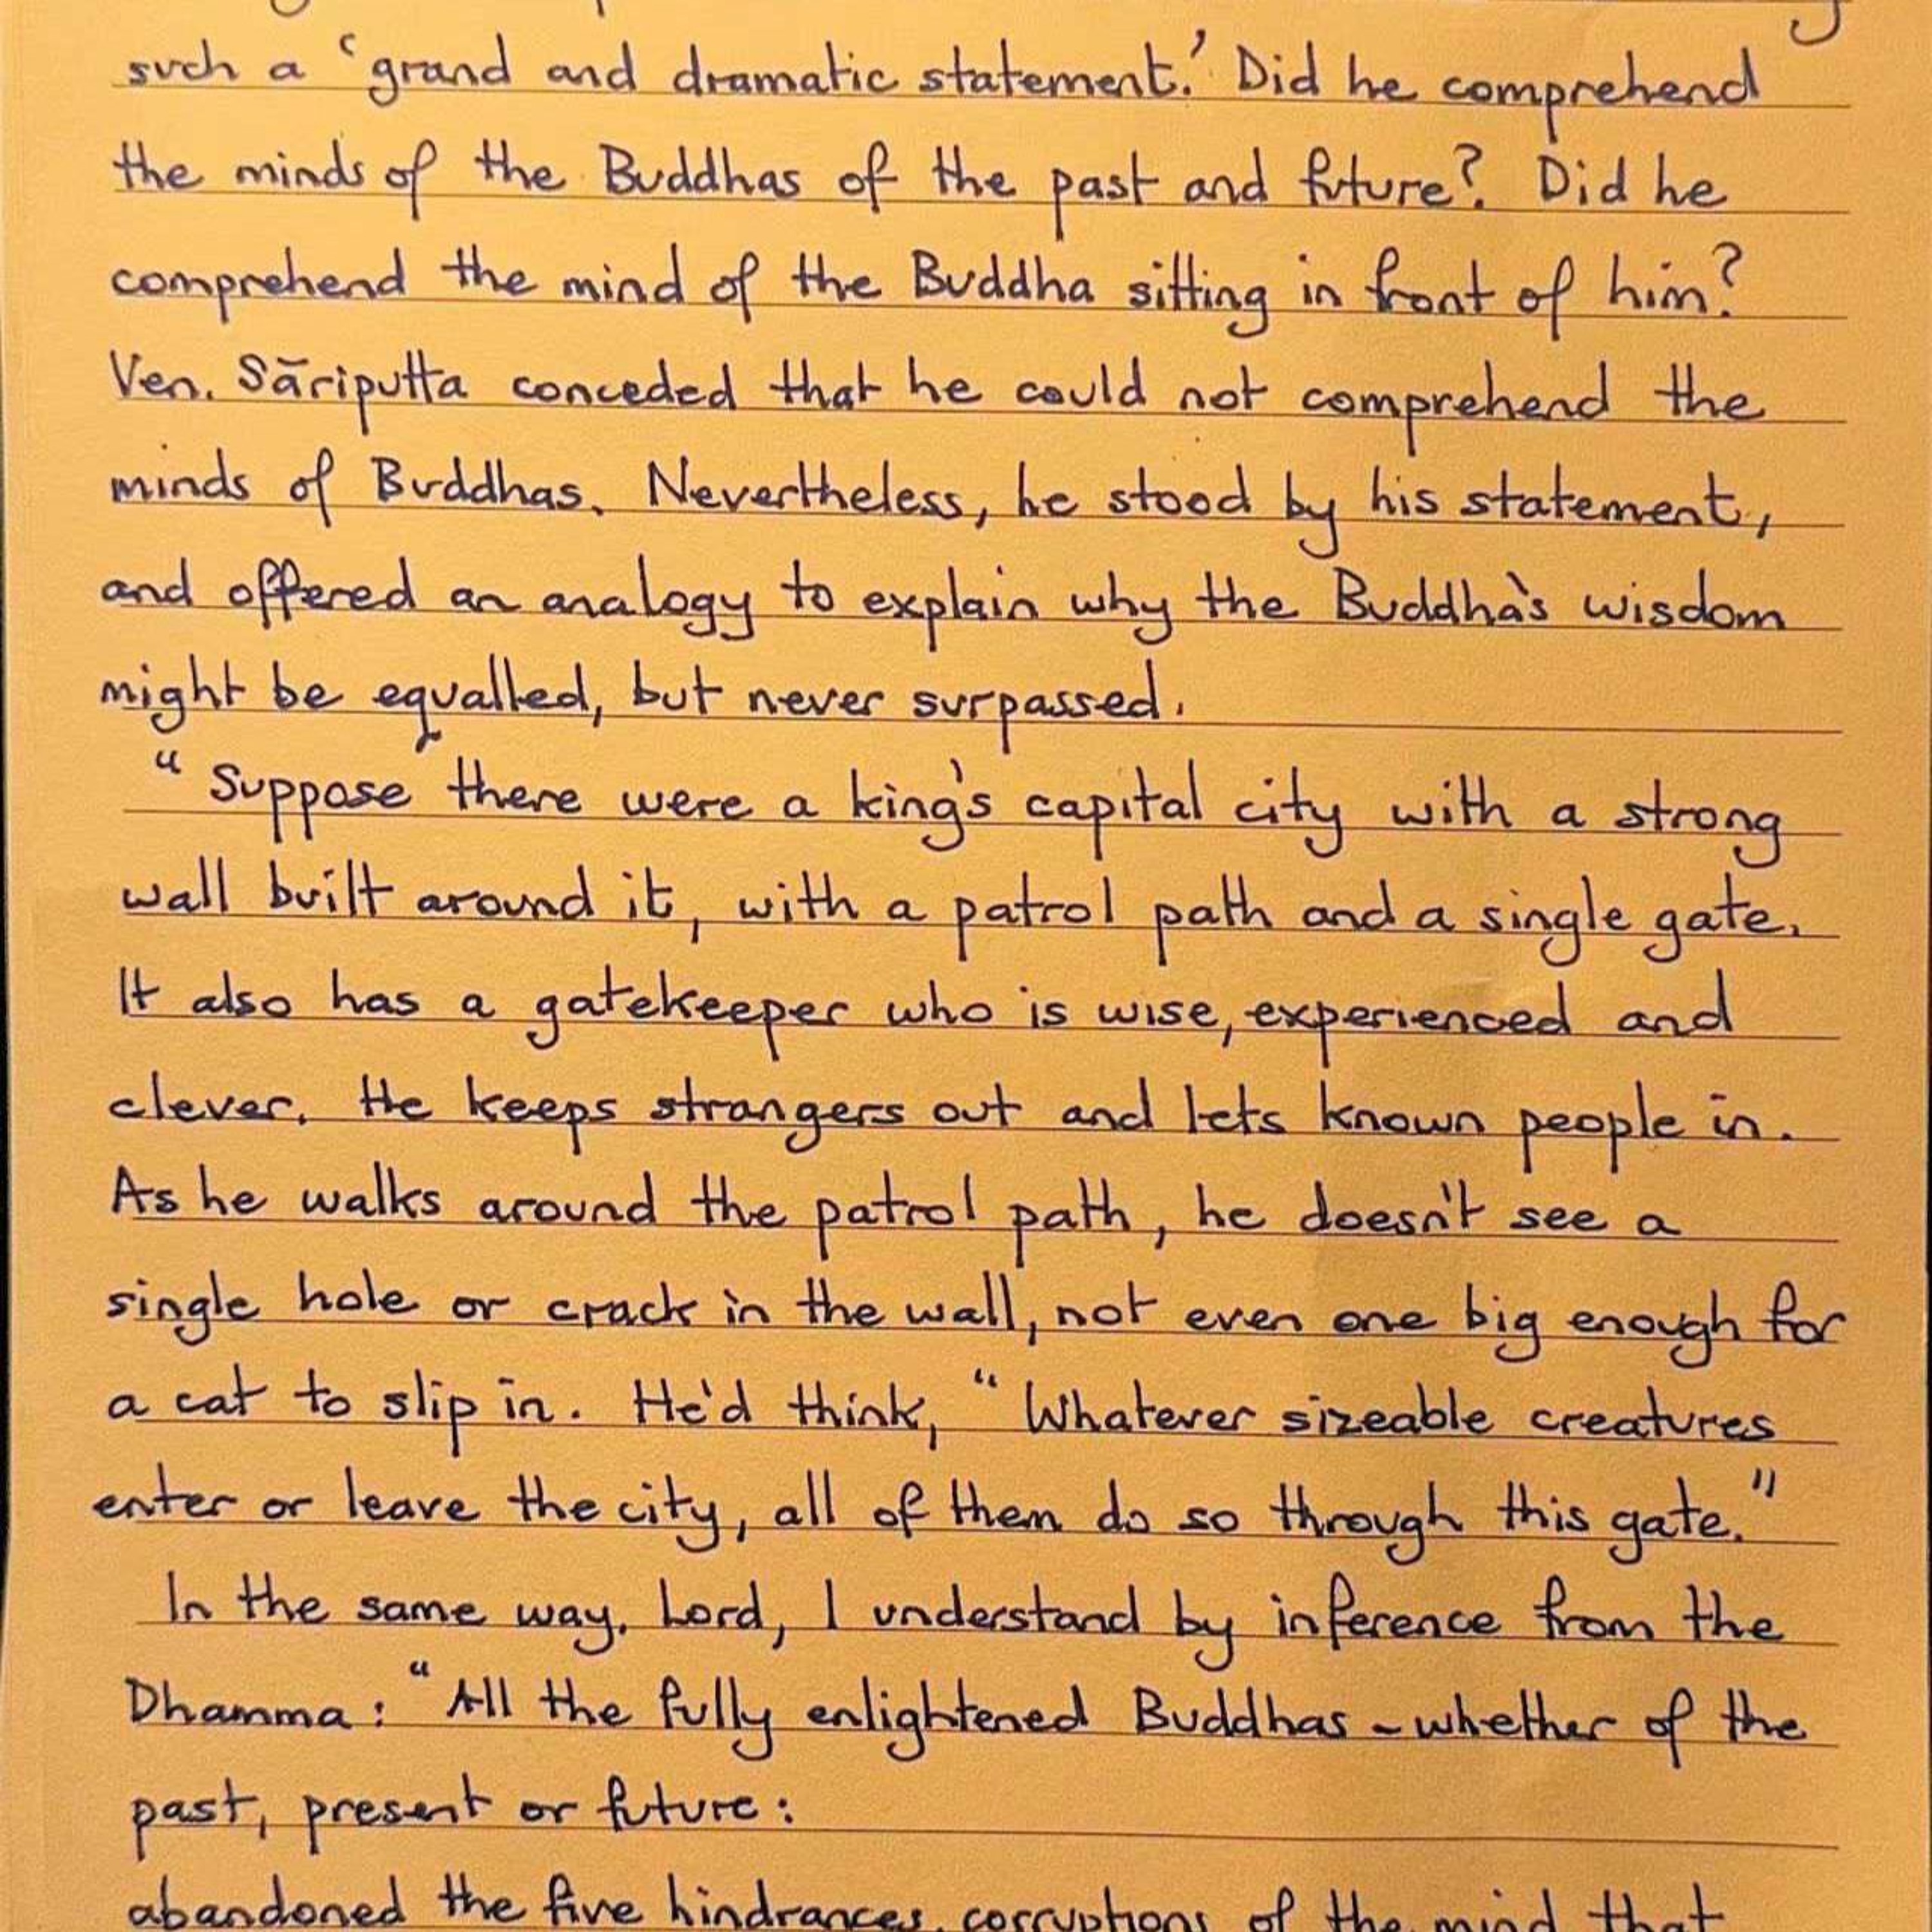 such a ‘grand and dramatic statement.’ Did he comprehend
the minds of the Buddhas of the past and future? Did he
comprehend the mind of the Buddha sitting in front of him?
Ven. Sāriputta conceded that he could not comprehend the
minds of Buddhas. Nevertheless, he stood by his statement,
and offered an analogy to explain why the Buddha's wisdom
might be equalled, but never surpassed.
“Suppose there were a king's capital city with a strong
wall built around it, with a patrol path and a single gate.
It also has a gatekeeper who is wise, experienced and
clever. He keeps strangers out and lets known people in.
As he walks around the patrol path, he doesn't see a
single hole or crack in the wall, not even one big enough for
a cat to slip in. He'd think, “Whatever sizeable creatures
enter or leave the city, all of them do so through this gate.”
In the same way. Lord, I understand by inference from the
Dhamma: “All the fully enlightened Buddhas - whether of the
past, present or future:
abandoned the five hindrances, corruptions of the mind that